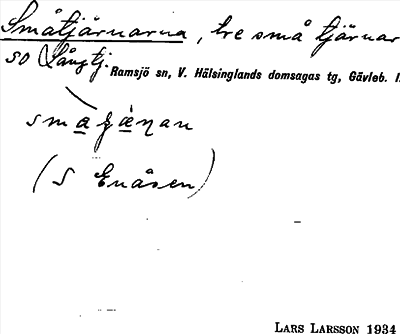 Småtjärnarna, tre små tjärnar
SO Långtj.
Ramsjö sn, V. Hälsinglands domsagas tg, Gävleb. l.
(S Enåsen)
LARS LARSSON 1934